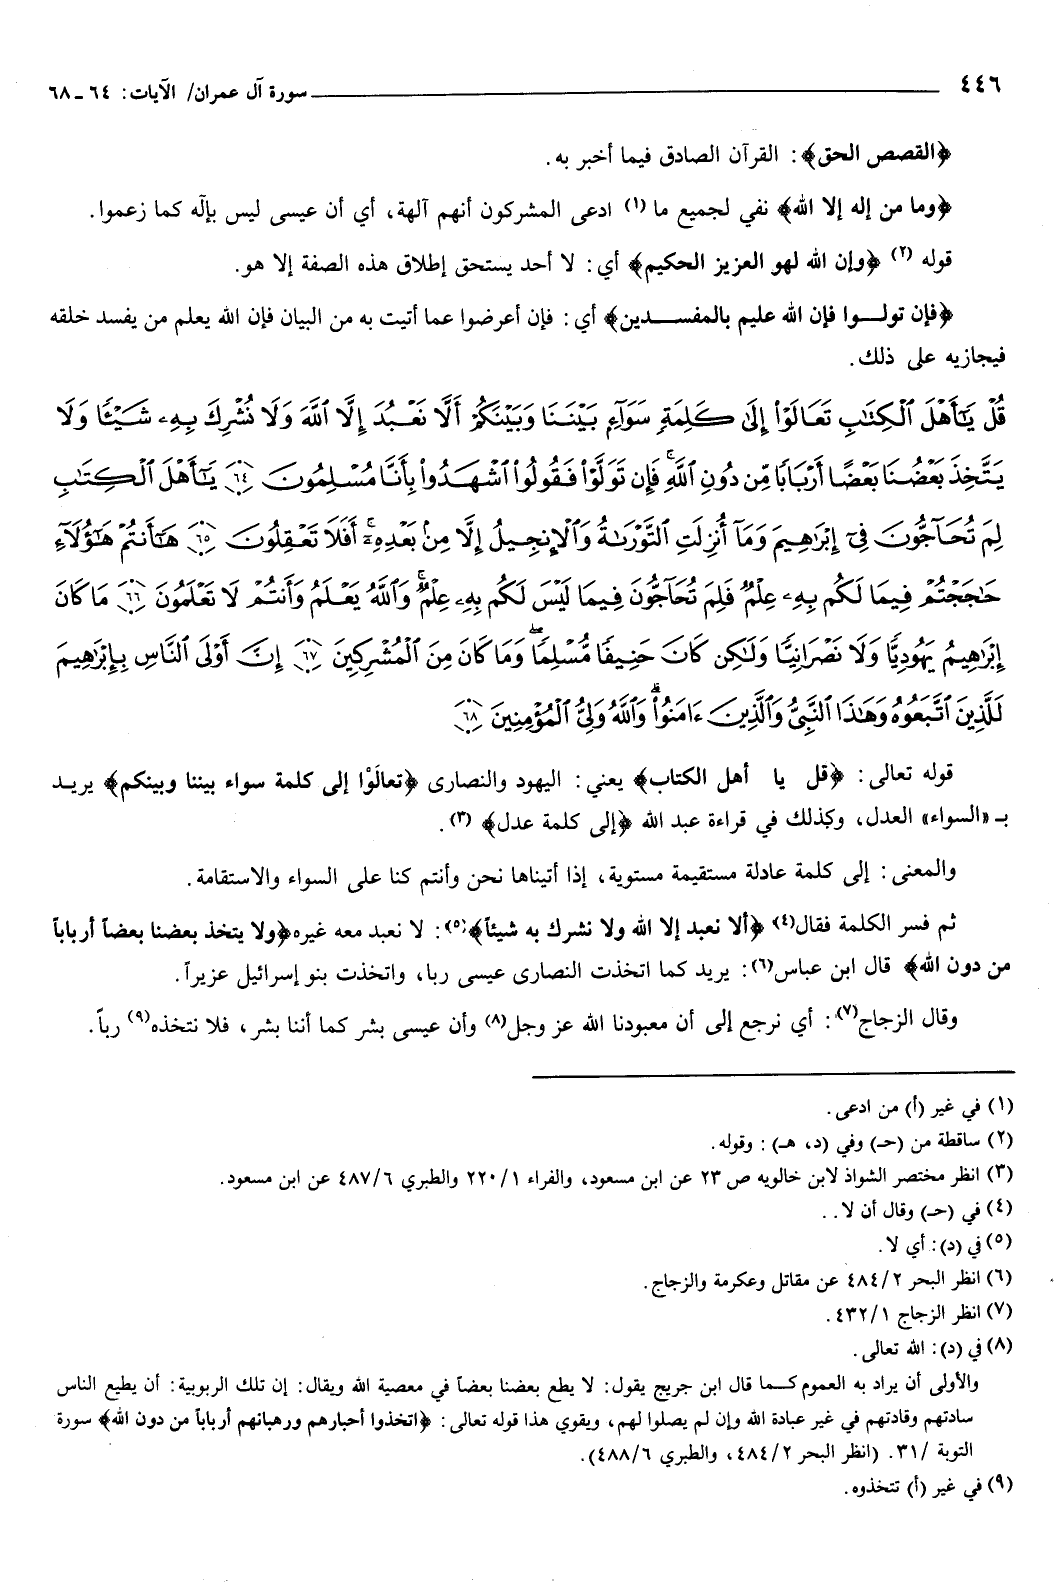 ٤٤٦ سورة آل عمران/ الآيات: ٦٤ ـ ٦٨
﴿القصص الحق﴾: القرآن الصادق فيما أخبر به.
﴿وما من إله إلا الله﴾ نفي لجميع ما (١) ادعى المشركون أنهم آلهة، أي أن عيسى ليس بإلٰه كما زعموا.
قوله (٢) ﴿وإن الله لهو العزيز الحكيم﴾ أي: لا أحد يستحق إطلاق هذه الصفة إلا هو.
﴿فإن تولــوا فإن الله عليم بالمفســدين﴾ أي: فإن أعرضوا عما أتيت به من البيان فإن الله يعلم من يفسد خلقه
فيجازيه على ذلك.
قُلْ يَٰٓأَهْلَ ٱلْكِتَٰبِ تَعَالَوْا۟ إِلَىٰ كَلِمَةٍ سَوَآءٍ بَيْنَنَا وَبَيْنَكُمْ أَلَّا نَعْبُدَ إِلَّا ٱللَّهَ وَلَا نُشْرِكَ بِهِۦ شَيْـًٔا وَلَا
يَتَّخِذَ بَعْضُنَا بَعْضًا أَرْبَابًا مِّن دُونِ ٱللَّهِ ۚ فَإِن تَوَلَّوْا۟ فَقُولُوا۟ ٱشْهَدُوا۟ بِأَنَّا مُسْلِمُونَ ٦٤ يَٰٓأَهْلَ ٱلْكِتَٰبِ
لِمَ تُحَآجُّونَ فِىٓ إِبْرَٰهِيمَ وَمَآ أُنزِلَتِ ٱلتَّوْرَىٰةُ وَٱلْإِنجِيلُ إِلَّا مِنۢ بَعْدِهِۦٓ ۚ أَفَلَا تَعْقِلُونَ ٦٥ هَٰٓأَنتُمْ هَٰٓؤُلَآءِ
حَٰجَجْتُمْ فِيمَا لَكُم بِهِۦ عِلْمٌ فَلِمَ تُحَآجُّونَ فِيمَا لَيْسَ لَكُم بِهِۦ عِلْمٌ ۚ وَٱللَّهُ يَعْلَمُ وَأَنتُمْ لَا تَعْلَمُونَ ٦٦ مَا كَانَ
إِبْرَٰهِيمُ يَهُودِيًّا وَلَا نَصْرَانِيًّا وَلَٰكِن كَانَ حَنِيفًا مُّسْلِمًا ۖ وَمَا كَانَ مِنَ ٱلْمُشْرِكِينَ ٦٧ إِنَّ أَوْلَى ٱلنَّاسِ بِإِبْرَٰهِيمَ
لَلَّذِينَ ٱتَّبَعُوهُ وَهَٰذَا ٱلنَّبِىُّ وَٱلَّذِينَ ءَامَنُوا۟ ۗ وَٱللَّهُ وَلِىُّ ٱلْمُؤْمِنِينَ ٦٨
قوله تعالى: ﴿قل يا أهل الكتاب﴾ يعني: اليهود والنصارى ﴿تعالَوْا إلى كلمة سواء بيننا وبينكم﴾ يريـد
بـ «السواء» العدل، وكذلك في قراءة عبد الله ﴿إلى كلمة عدل﴾ (٣).
والمعنى: إلى كلمة عادلة مستقيمة مستوية، إذا أتيناها نحن وأنتم كنا على السواء والاستقامة.
ثم فسر الكلمة فقال(٤) ﴿ألا نعبد إلا الله ولا نشرك به شيئاً﴾(٥): لا نعبد معه غيره﴿ولا يتخذ بعضنا بعضاً أرباباً
من دون الله﴾ قال ابن عباس(٦): يريد كما اتخذت النصارى عيسى ربا، واتخذت بنو إسرائيل عزيراً.
وقال الزجاج(٧): أي نرجع إلى أن معبودنا الله عز وجل(٨) وأن عيسى بشر كما أننا بشر، فلا نتخذه(٩) رباً.
(١) في غير (أ) من ادعى.
(٢) ساقطة من (حـ) وفي (د، هـ): وقوله.
(٣) انظر مختصر الشواذ لابن خالويه ص ٢٣ عن ابن مسعود، والفراء ١/ ٢٢٠ والطبري ٦/ ٤٨٧ عن ابن مسعود.
(٤) في (حـ) وقال أن لا..
(٥) في (د): أي لا.
(٦) انظر البحر ٢/ ٤٨٤ عن مقاتل وعكرمة والزجاج.
(٧) انظر الزجاج ١/ ٤٣٢.
(٨) في (د): الله تعالى.
والأولى أن يراد به العموم كـما قال ابن جريج يقول: لا يطع بعضنا بعضاً في معصية الله ويقال: إن تلك الربوبية: أن يطيع الناس
سادتهم وقادتهم في غير عبادة الله وإن لم يصلوا لهم، ويقوي هذا قوله تعالى: ﴿اتخذوا أحبارهم ورهبانهم أرباباً من دون الله﴾ سورة
التوبة / ٣١. (انظر البحر ٢/ ٤٨٤، والطبري ٦/ ٤٨٨).
(٩) في غير (أ) تتخذوه.